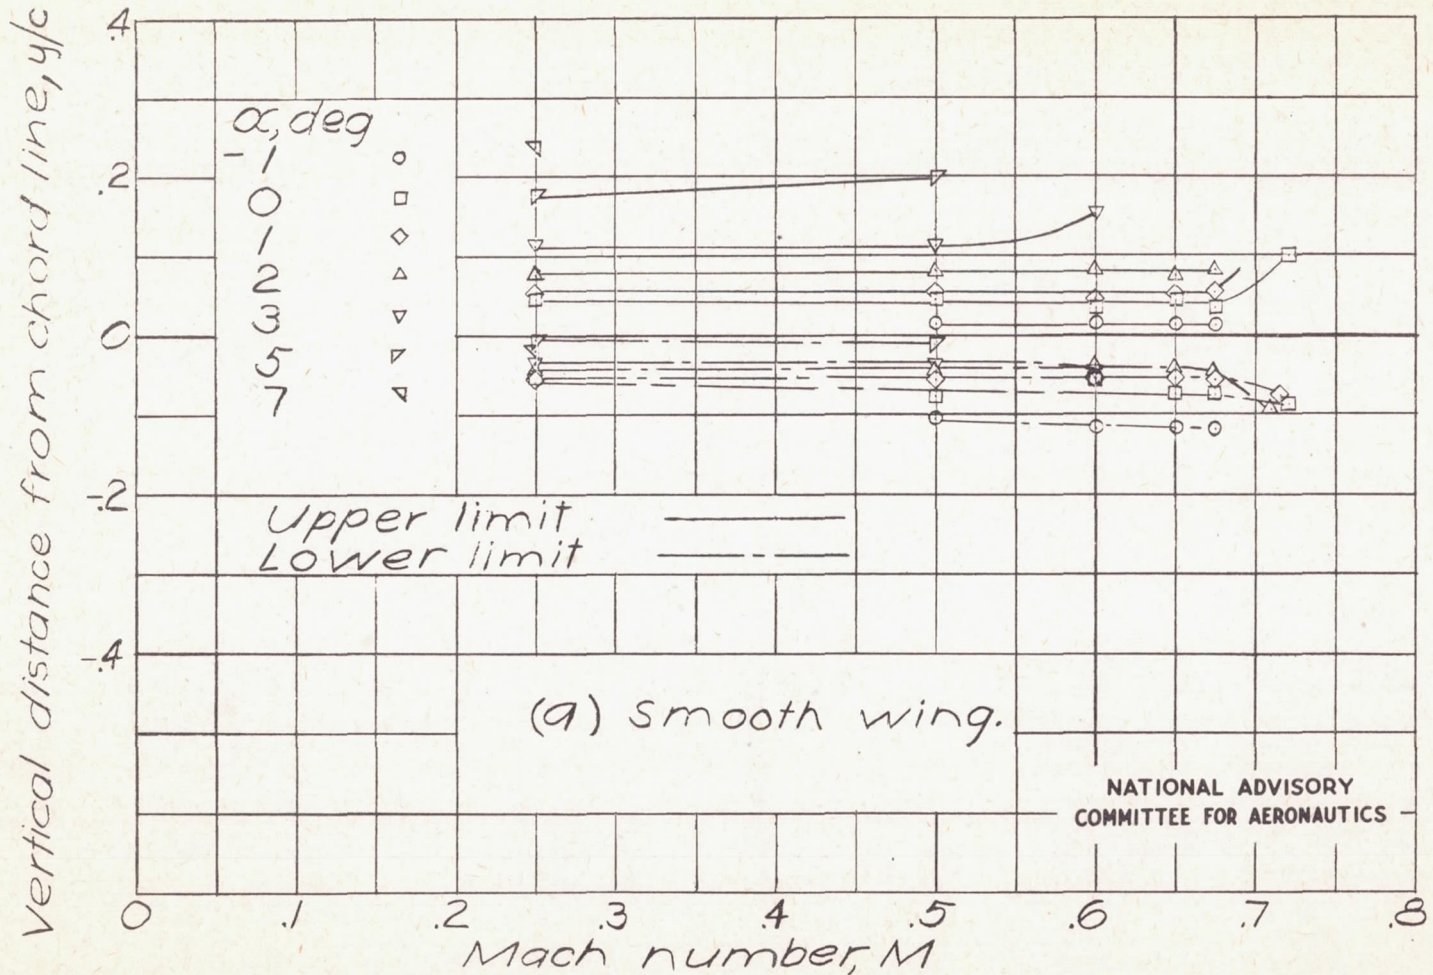 Vertical distance from chord line, y/c
.4
.2
0
-.2
-.4
α, deg
-1
0
1
2
3
5
7
Upper limit
Lower limit
(a) Smooth wing.
NATIONAL ADVISORY
COMMITTEE FOR AERONAUTICS
0 .1 .2 .3 .4 .5 .6 .7 .8
Mach number, M